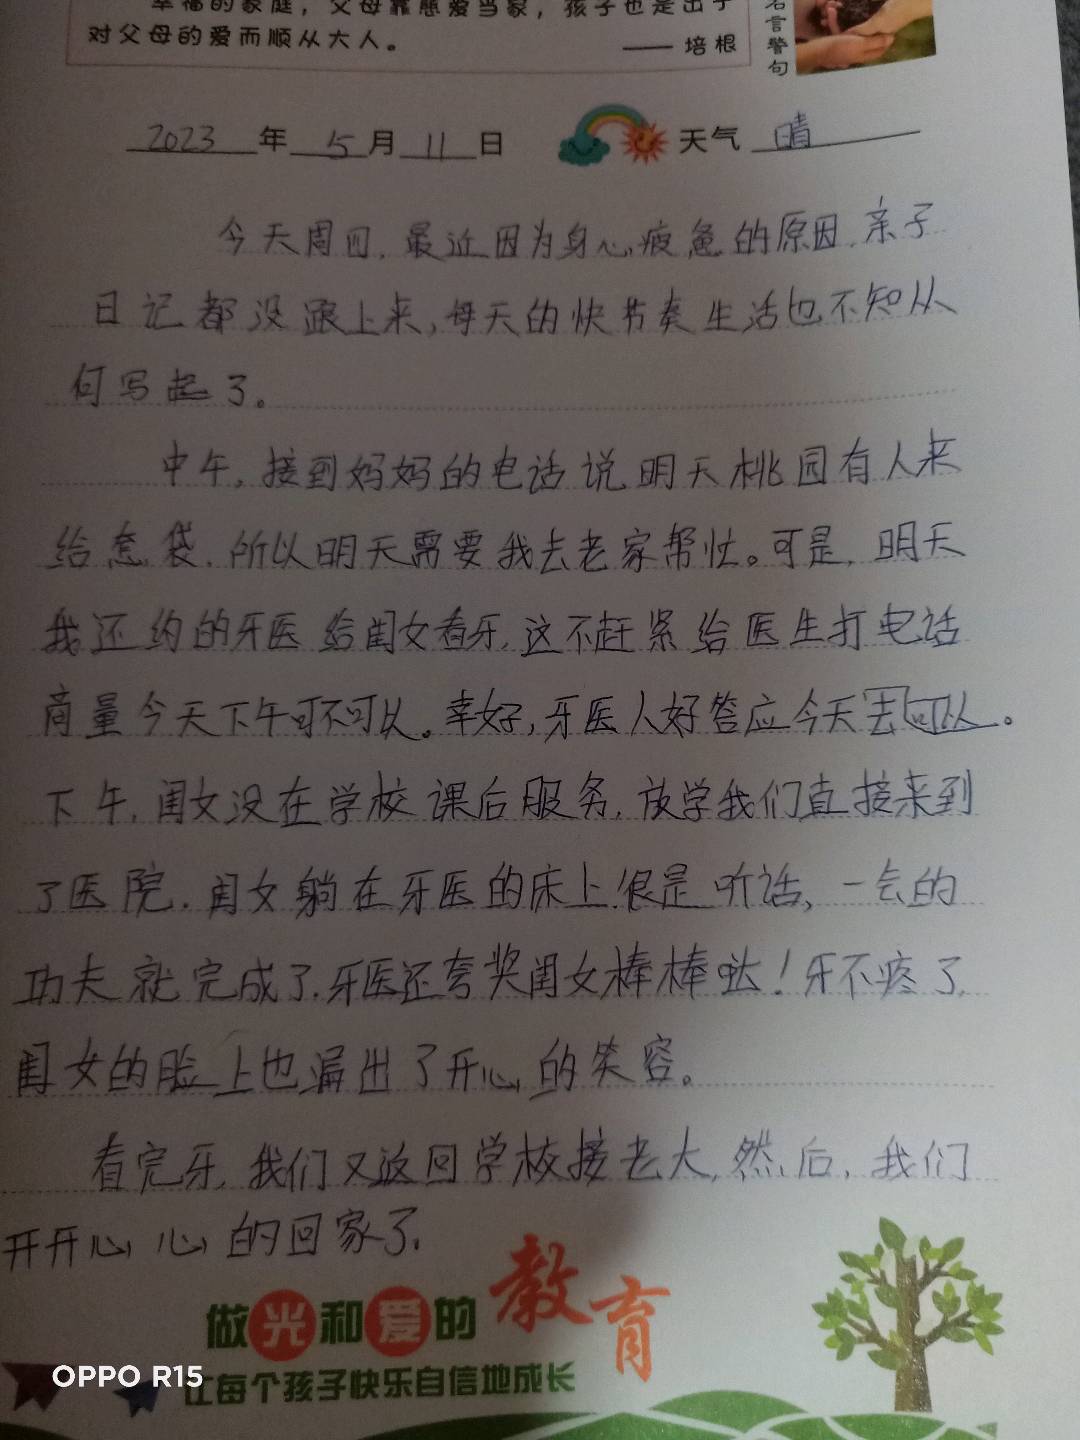 幸福的家庭，父母靠慈爱当家，孩子也是出于
对父母的爱而顺从大人。
—— 培根
名言警句
2023年5月11日 天气 晴
今天周四，最近因为身心疲惫的原因，亲子
日记都没跟上来，每天的快节奏生活也不知从
何写起了。
中午，接到妈妈的电话说明天桃园有人来
给套袋，所以明天需要我去老家帮忙。可是，明天
我还约的牙医给闺女看牙，这不赶紧给医生打电话
商量今天下午可不可以。幸好，牙医人好答应今天去可以。
下午，闺女没在学校课后服务，放学我们直接来到
了医院，闺女躺在牙医的床上很是听话，一会的
功夫就完成了，牙医还夸奖闺女棒棒哒！牙不疼了，
闺女的脸上也漏出了开心的笑容。
看完牙，我们又返回学校接老大，然后，我们
开开心心的回家了。
做光和爱的教育
让每个孩子快乐自信地成长
OPPO R15